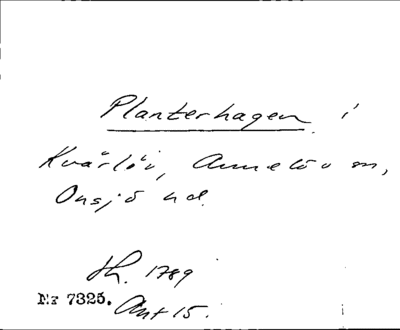 Planterhagen i
Kvärlöv, Annelöv sn,
Onsjö hd.
Sk. 1789
Nr 7325. Akt 15.